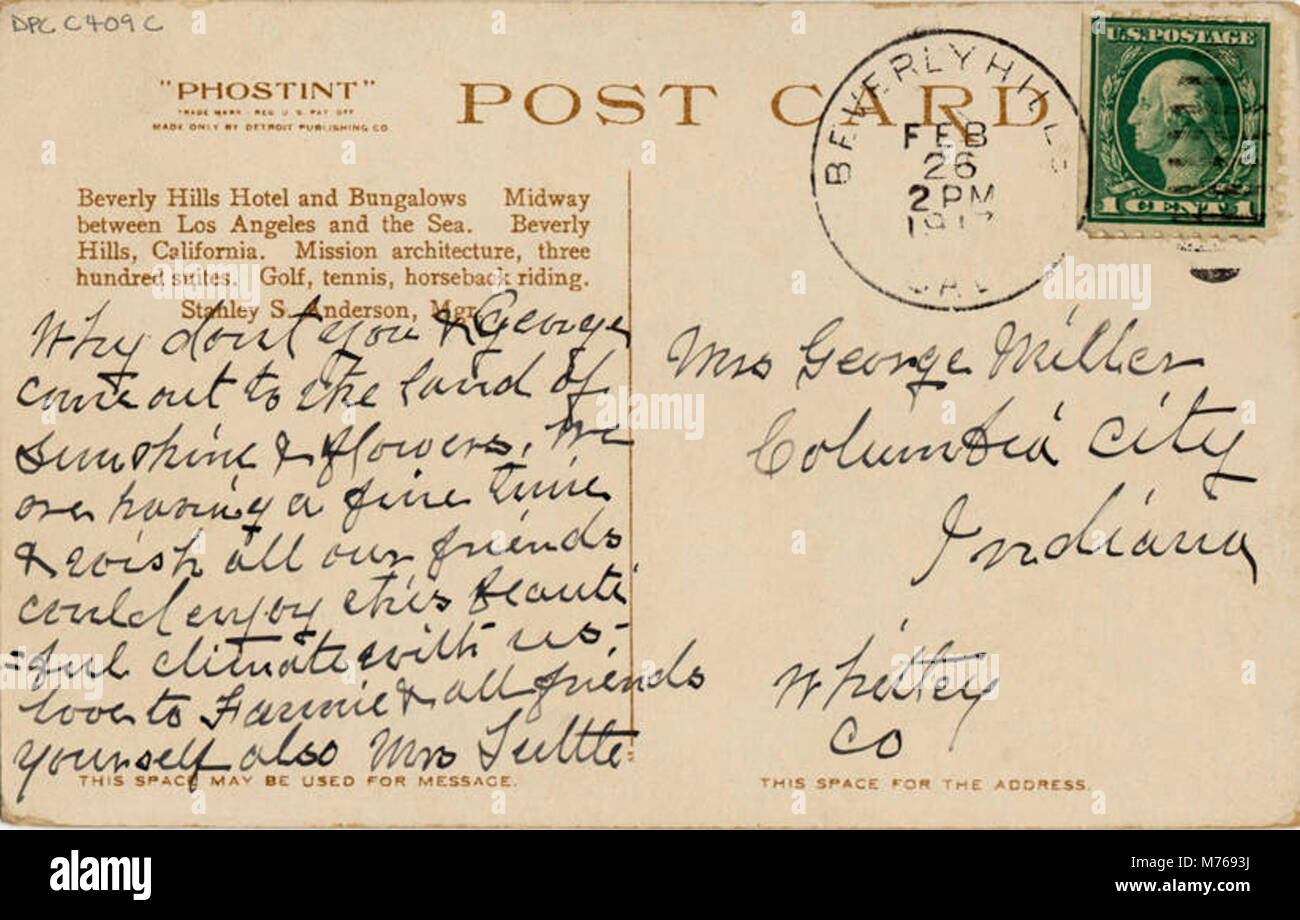 DPC C409 C
"PHOSTINT"
TRADE MARK - REG U. S. PAT. OFF
MADE ONLY BY DETROIT PUBLISHING CO.
POST CARD
BEVERLY HILLS
FEB
26
2 PM
1917
CAL
U.S. POSTAGE
1 CENT 1
Beverly Hills Hotel and Bungalows Midway
between Los Angeles and the Sea. Beverly
Hills, California. Mission architecture, three
hundred suites. Golf, tennis, horseback riding.
Stanley S. Anderson, Mgr.
Why dont you & George
come out to the land of
sunshine & flowers. We
are having a fine time
& wish all our friends
could enjoy this beauti
=ful climate with us,
love to Fannie & all friends
yourself also Mrs
THIS SPACE MAY BE USED FOR MESSAGE.
Mrs George Miller
Columbia City
Indiana
Whitley
Co
THIS SPACE FOR THE ADDRESS.
alamy
alamy
alamy
alamy
Image ID: M7693J
www.alamy.com